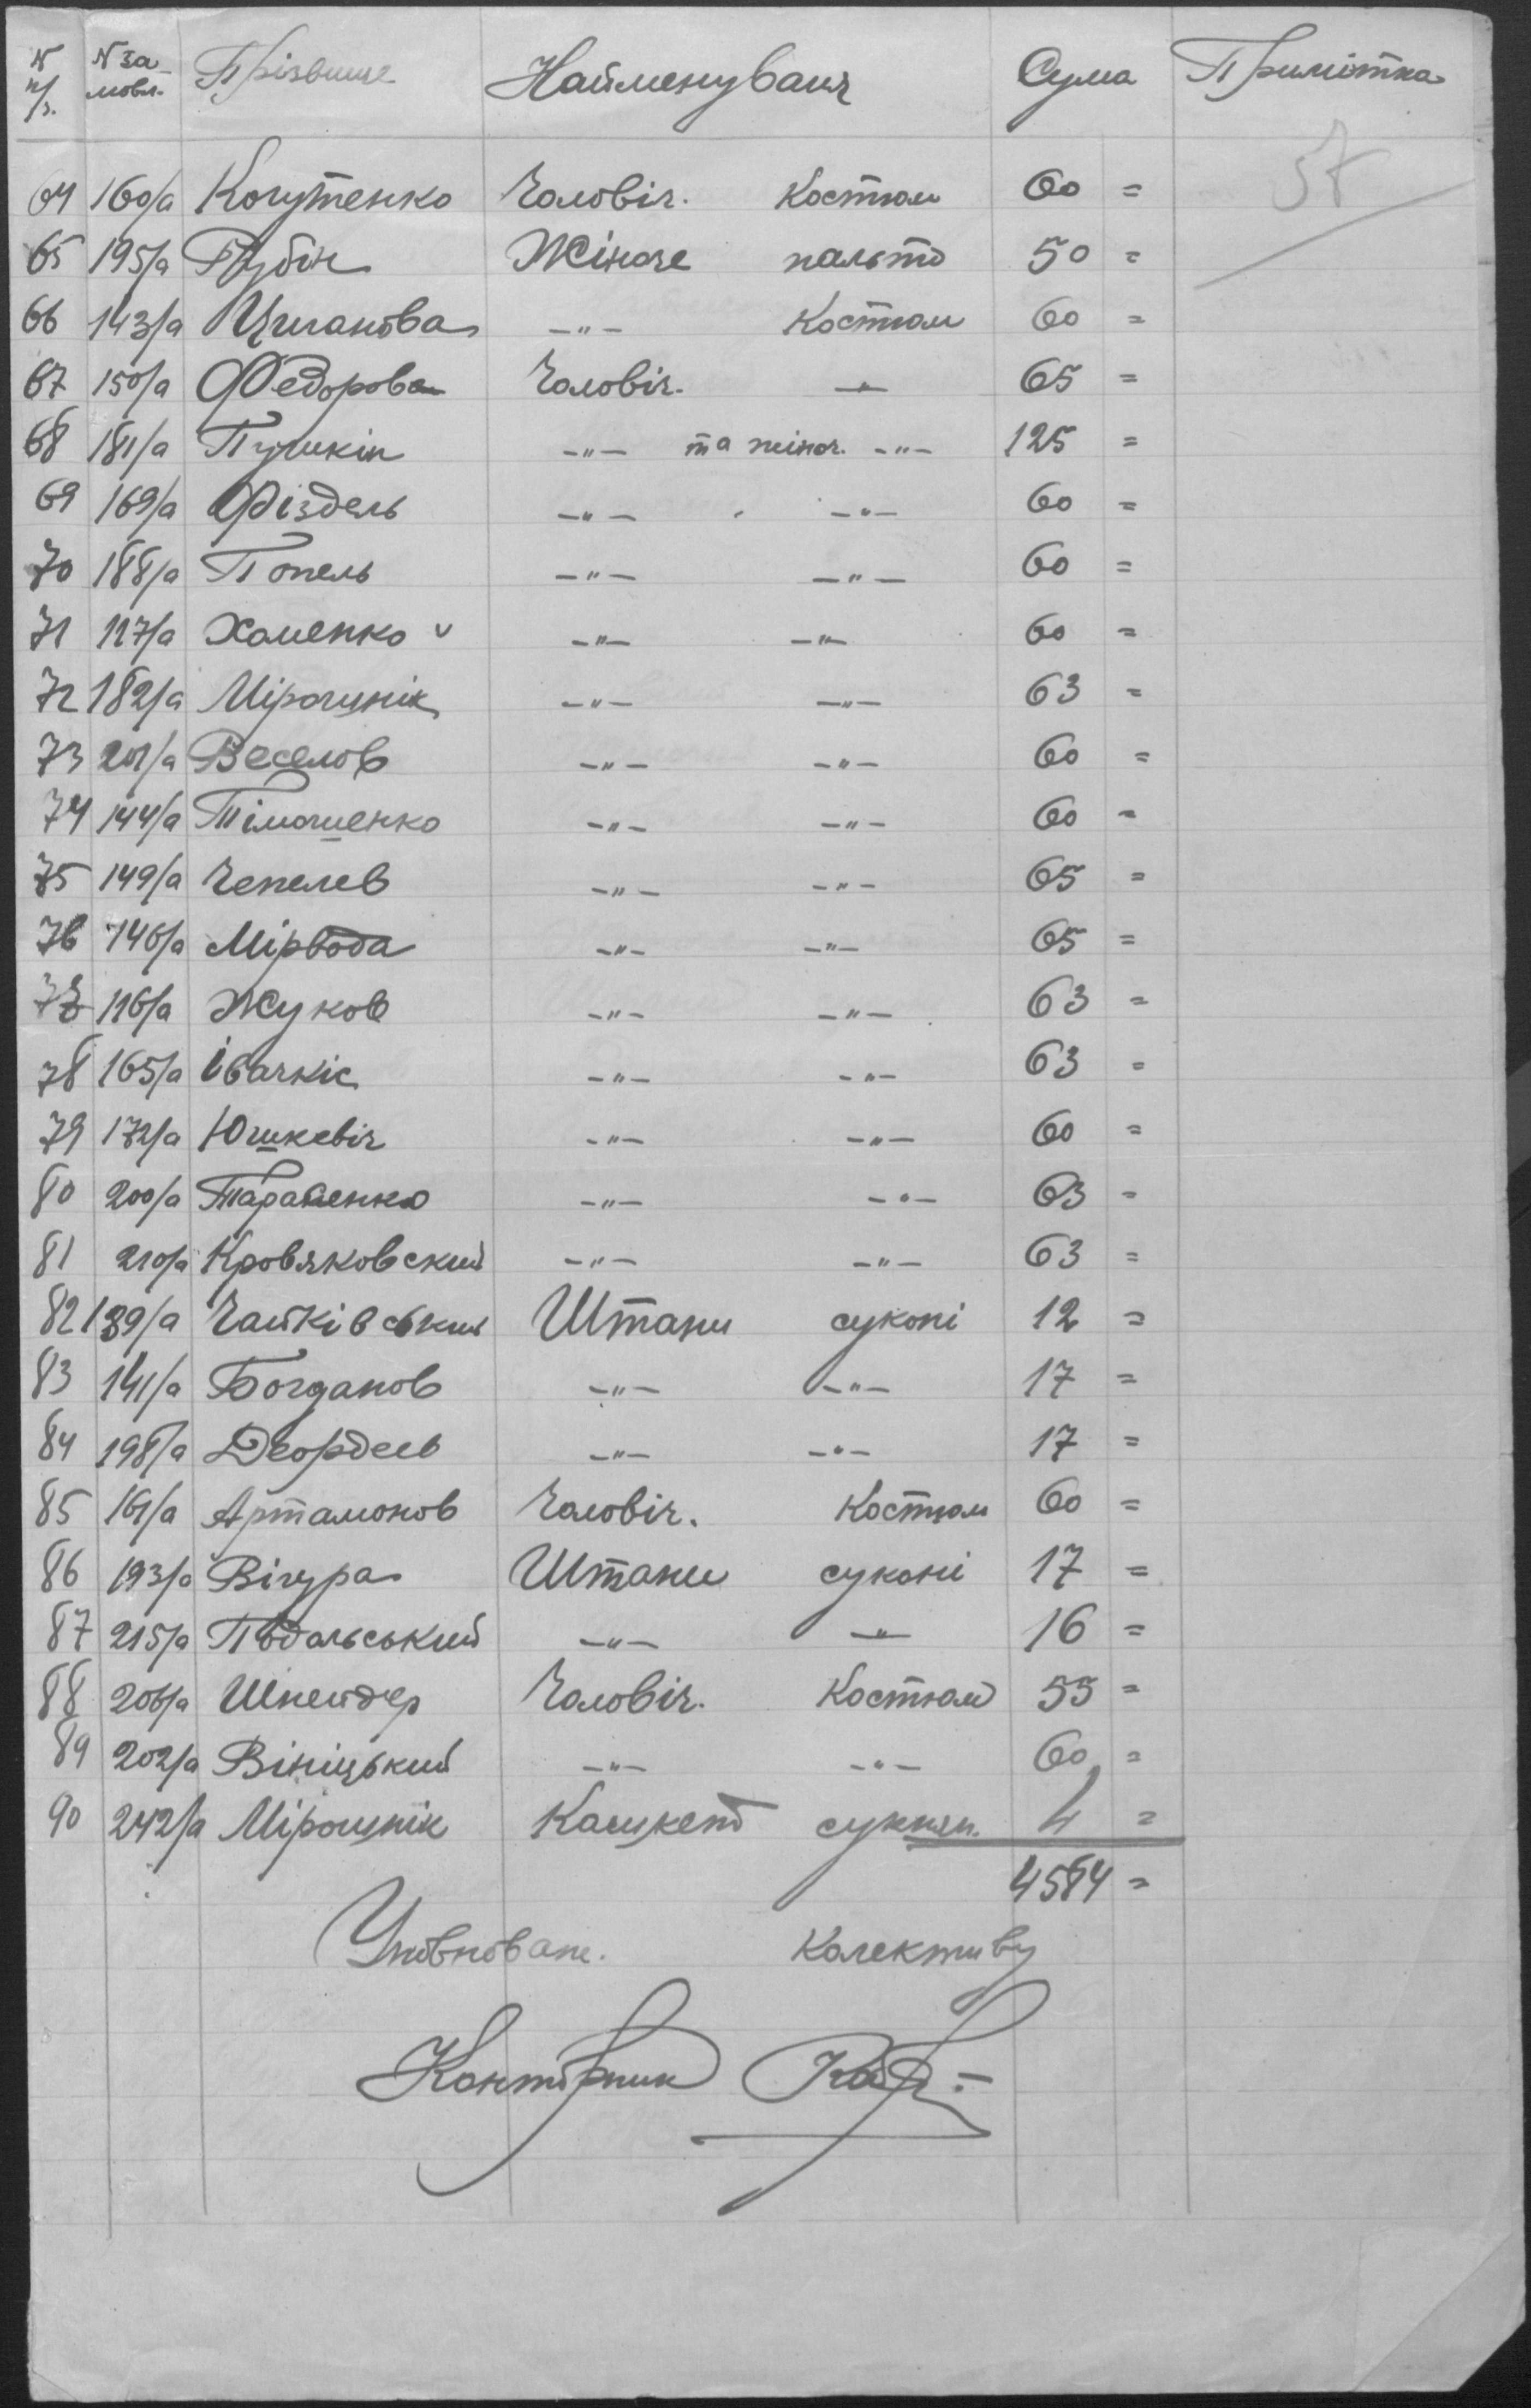 N п/з. N за-мовл. Прізвище Найменуваня Сума Примітка
57
64 160/а Когутенко Чоловіч. Костюм 60 =
65 195/а Рубін Жіноче пальто 50 =
66 143/а Циганова -"- Костюм 60 =
67 150/а Федорова Чоловіч. -"- 65 =
68 181/а Пушкін -"- та жіноч. -"- 125 =
69 169/а Фіздель -"- -"- 60 =
70 188/а Попель -"- -"- 60 =
71 127/а Хоменко v -"- -"- 60 =
72 182/а Мірошнік -"- -"- 63 =
73 201/а Веселов -"- -"- 60 =
74 144/а Тімошенко -"- -"- 60 =
75 149/а Чепелев -"- -"- 65 =
76 146/а Мірвода -"- -"- 65 =
77 116/а Жуков -"- -"- 63 =
78 165/а Івачкіс -"- -"- 63 =
79 172/а Юшкевіч -"- -"- 60 =
80 200/а Тараненко -"- -"- 63 =
81 210/а Кровяковский -"- -"- 63 =
82 139/а Чайківський Штани суконі 12 =
83 141/а Богданов -"- -"- 17 =
84 198/а Деордеев -"- -"- 17 =
85 161/а Артамонов Чоловіч. Костюм 60 =
86 193/а Вігура Штани суконі 17 =
87 215/а Подольський -"- -"- 16 =
88 206/а Шнейдер Чоловіч. Костюм 55 =
89 202/а Вініцький -"- -"- 60 =
90 242/а Мірошнік Кашкет сукнян. 4 =
4584 =
Уповноваж. Колективу